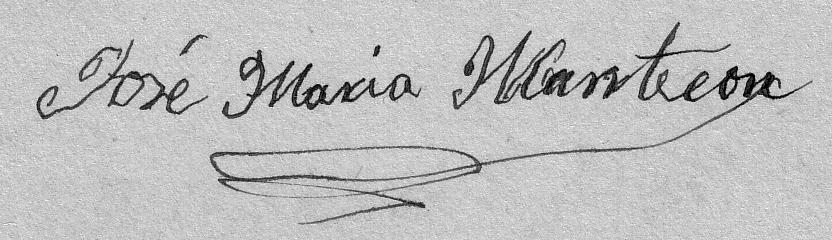 José Maria Mantecon